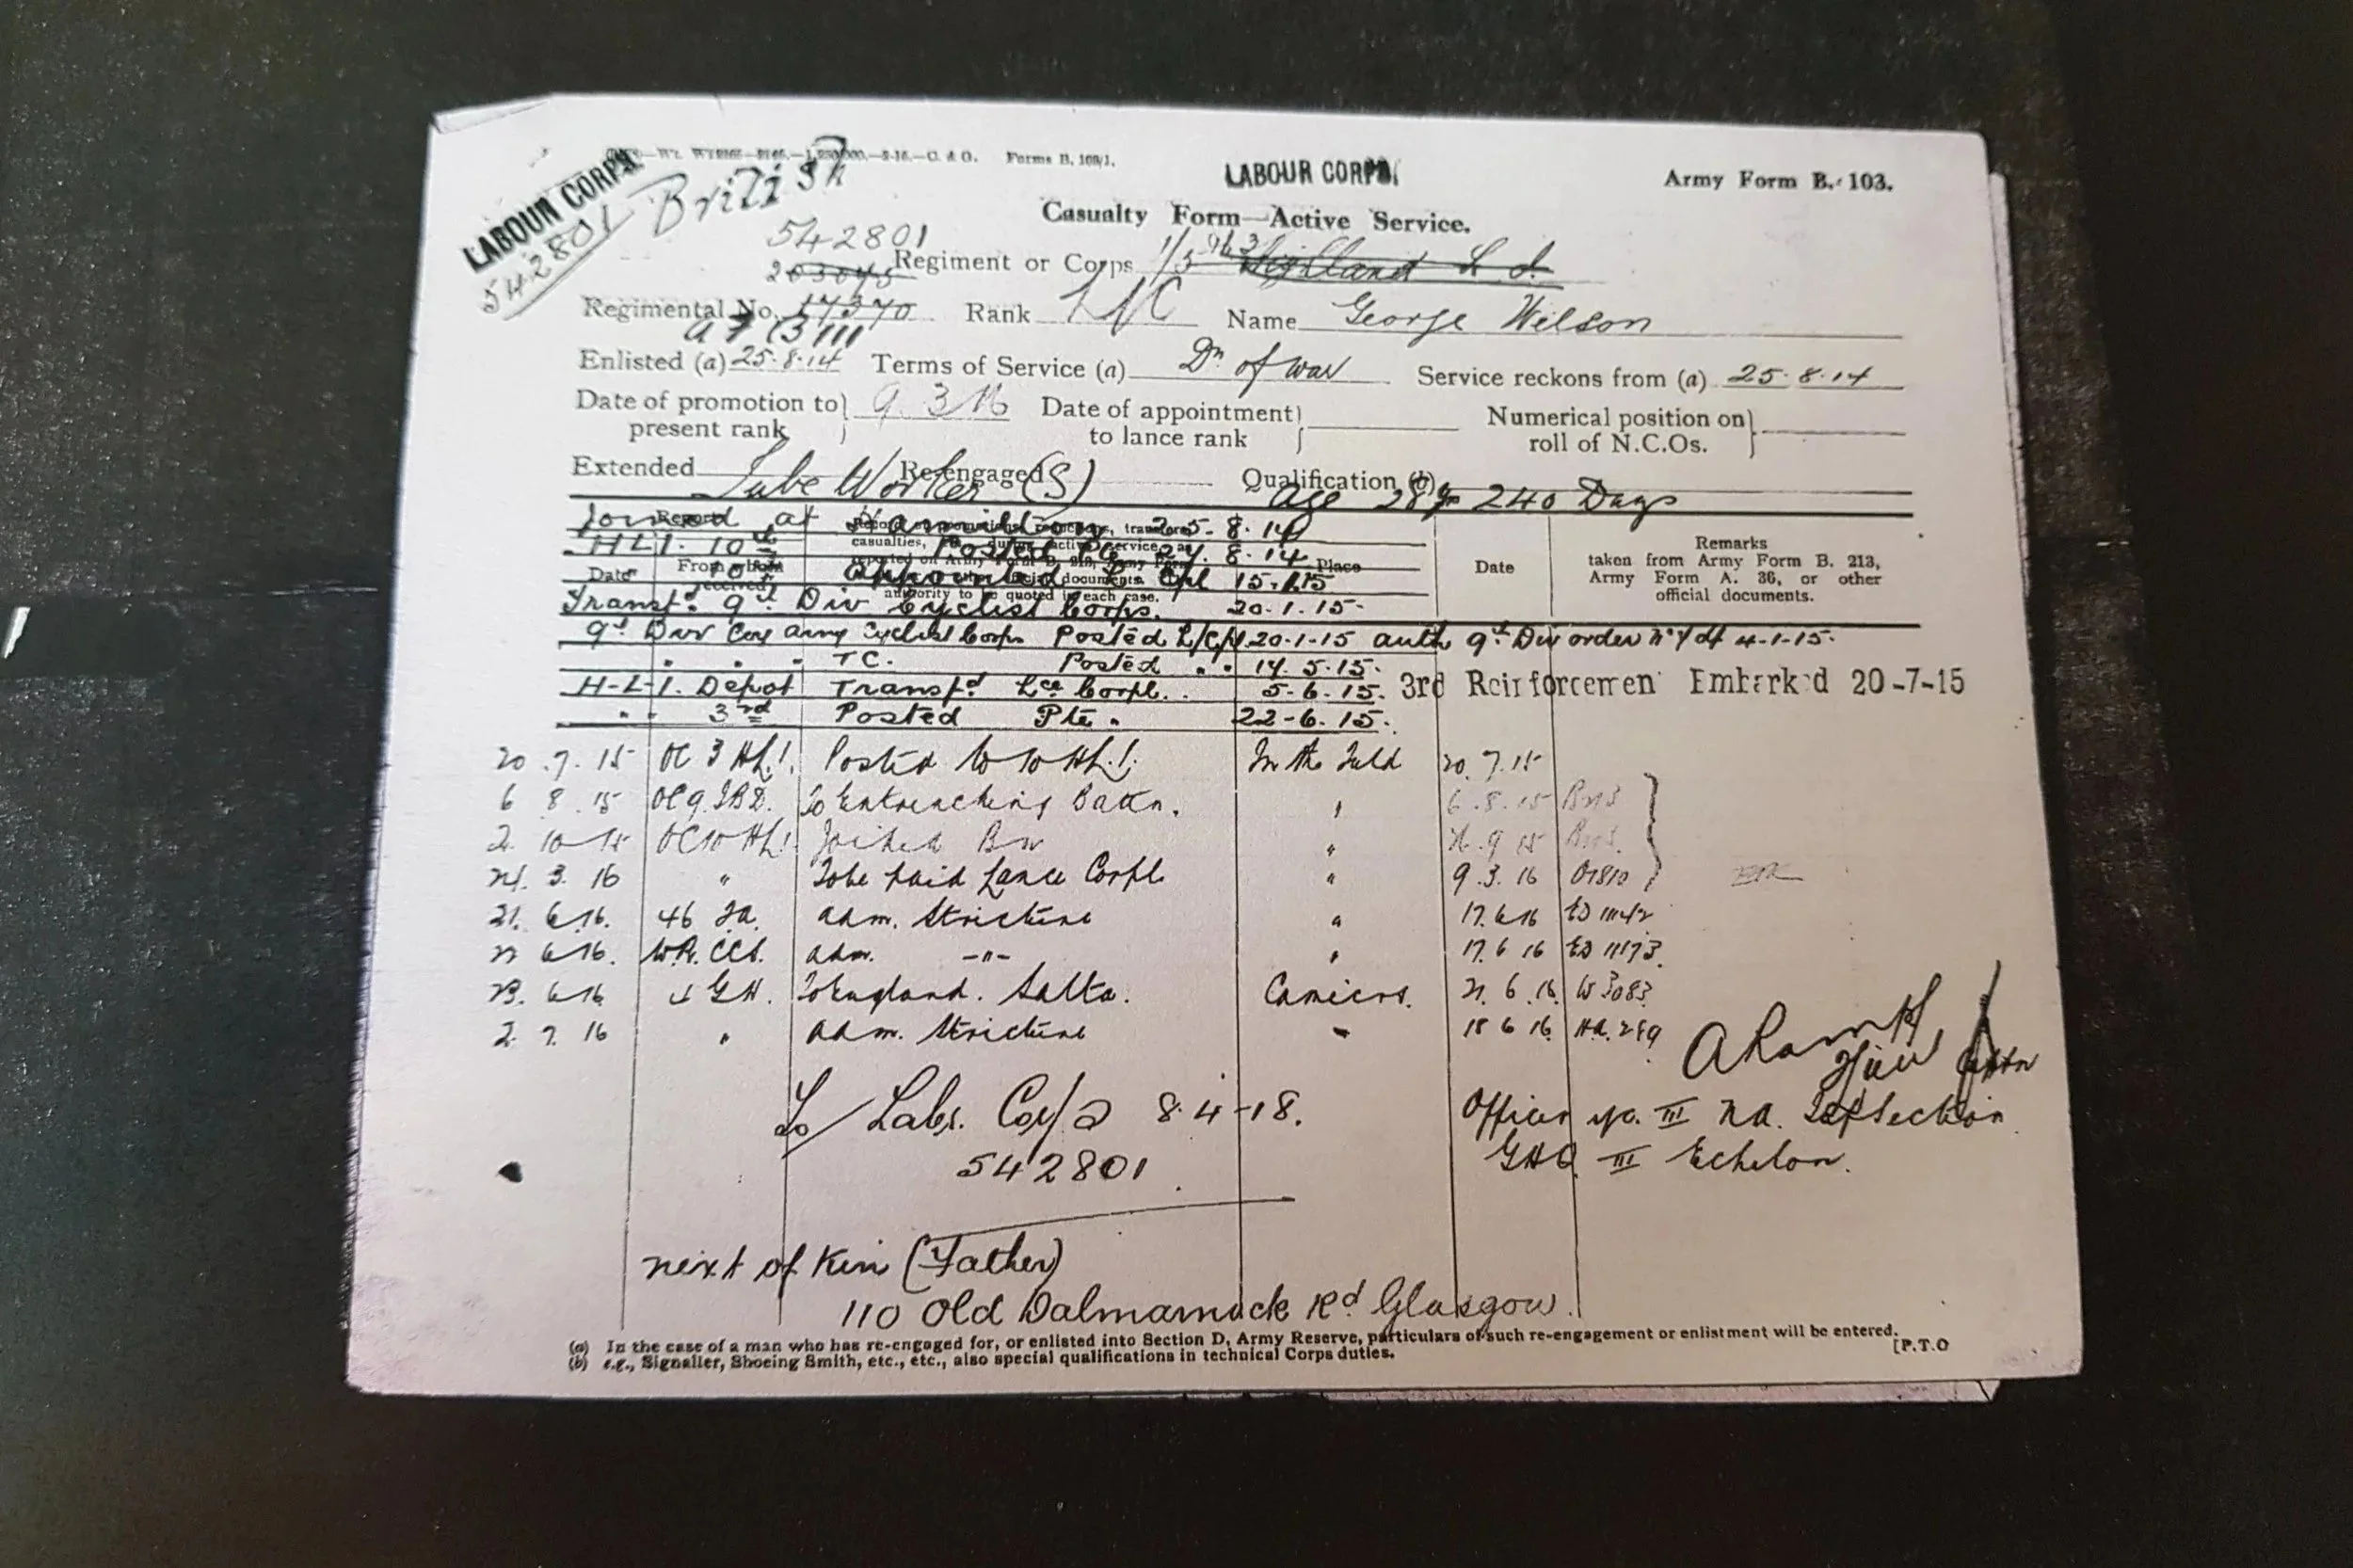 LABOUR CORPS.
542801
British
Forms B. 103/1.
LABOUR CORPS.
Army Form B. 103.
Casualty Form—Active Service.
542801
203045 Regiment or Corps 1/5 Highland L I.
Regimental No. 17370 Rank L/C Name George Wilson
Enlisted (a) 25.8.14 Terms of Service (a) Dn of war Service reckons from (a) 25.8.14
Date of promotion to present rank 9 3 16 Date of appointment to lance rank Numerical position on roll of N.C.Os.
Extended Re-engaged Qualification (b)
Tube Worker (S) age 28 240 Days
Joined at Hamilton 25.8.14
H.L.I. 10th Posted Pte 27.8.14
10th appointed L Cpl 15.1.15
Transfd 9th Div Cyclist Corps. 20.1.15.
9th Div Coy Army Cyclist Corps Posted L/Cpl 20-1-15 auth 9th Div order No 4 of 4-1-15.
" " " T C. Posted " " 14.5.15.
H-L-I. Depot Transfd Lce Corpl. " 5-6.15. 3rd Reinforcement Embarked 20-7-15
" " 3rd Posted Pte " 22-6.15.
Date From whom received Place Date
Remarks taken from Army Form B. 213, Army Form A. 36, or other official documents.
20.7.15 OC 3 HLI. Posted to 10 HLI. In the Field 20.7.15
6 8 15 OC 9 IBD. To Entrenching Battn. " 6.8.15 B213
2 10 15 OC 10 HLI Joined Bn " 9 15 B213
3. 16 " To be paid Lance Corpl. " 9.3.16 O1810
21.6.16. 46 FA. adm. Stricture " 17.6.16
6.16. W.R. CCS. adm. —"— " 17.6.16
23.6.16 4 GH. To England. Camiers. 21.6.16. W3083
2.7.16 " adm. Stricture " 18 6 16
To Labr. Corps 8-4-18.
542801
Officer i/c. III Section
GHQ III Echelon.
next of Kin (Father)
110 Old Dalmarnock Rd Glasgow.
(a) In the case of a man who has re-engaged for, or enlisted into Section D, Army Reserve, particulars of such re-engagement or enlistment will be entered.
(b) e.g., Signaller, Shoeing Smith, etc., etc., also special qualifications in technical Corps duties.
[P.T.O